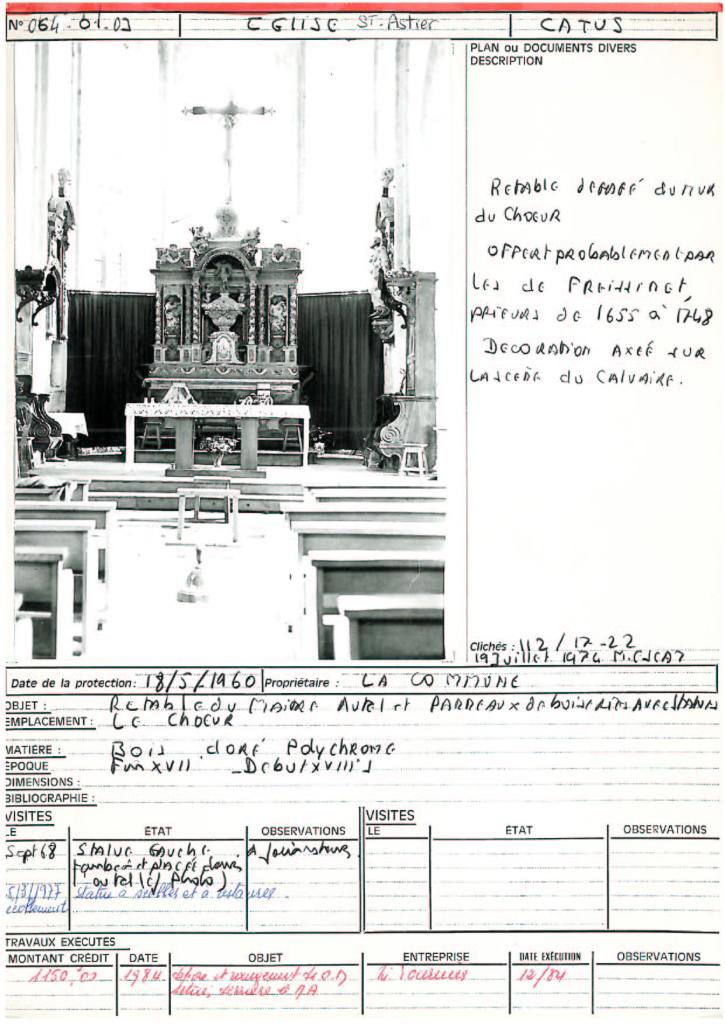 N° 064-01.03 EGLISE ST-Astier CATUS
PLAN ou DOCUMENTS DIVERS
DESCRIPTION
RETABLE DEGAGÉ DU MUR
du Choeur
OFFERT probablement par
Les de FREISSINET,
PRIEURS de 1655 à 1748
DECORATION AXEÉ SUR
LA SCENE du CALVAIRE.
Clichés : 112 / 17-22
19 Juillet 1974
Date de la protection: 18/5/1960 Propriétaire : LA COMMUNE
OBJET : Retable du MAITRE AUTEL et PANNEAUX de BOISERIES AVEC
EMPLACEMENT : LE CHOEUR
MATIÈRE : Bois doré Polychrome
EPOQUE Fin XVII - Debut XVIII's
DIMENSIONS :
BIBLIOGRAPHIE :
VISITES VISITES
LE ÉTAT OBSERVATIONS LE ÉTAT OBSERVATIONS
Sept 68 STATUE GAUCHE
tombée et placée dans
autel (cf Photo)
1977 Statue a sceller et a restaurer
TRAVAUX EXECUTES
MONTANT CRÉDIT DATE OBJET ENTREPRISE DATE EXÉCUTION OBSERVATIONS
1150,00 1984 dépose et rangement 12/84